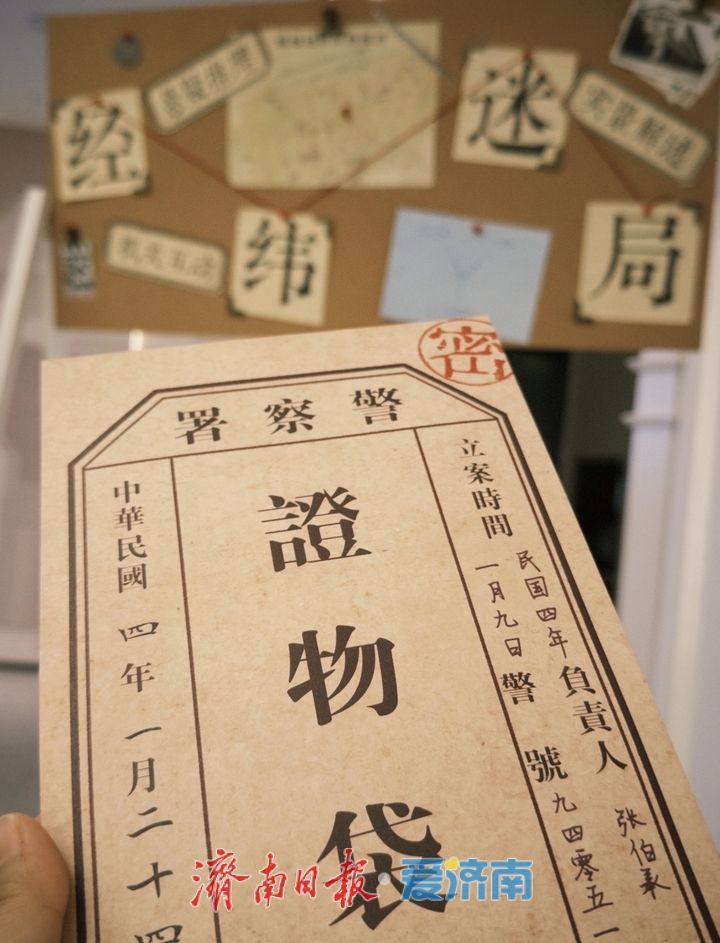 经纬迷局
密
警察署
立案時間 民国四年
一月九日
負責人 张伯承
警號 九四零五一
證物袋
中華民國 四年 一月二十四
濟南日報·爱济南